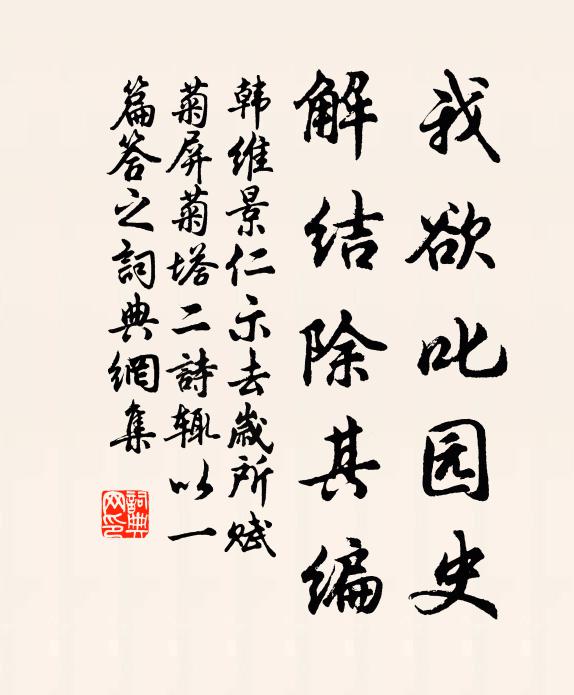 我欲叱园史
解结除其编
韩维景仁示去歲所赋
菊屏菊塔二詩辄以一
篇答之詞典網集
詞典网印